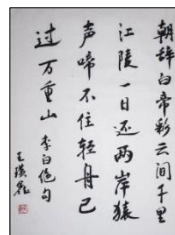 朝辞白帝彩云间千里
江陵一日还两岸猿
声啼不住轻舟已
过万重山 李白绝句
王